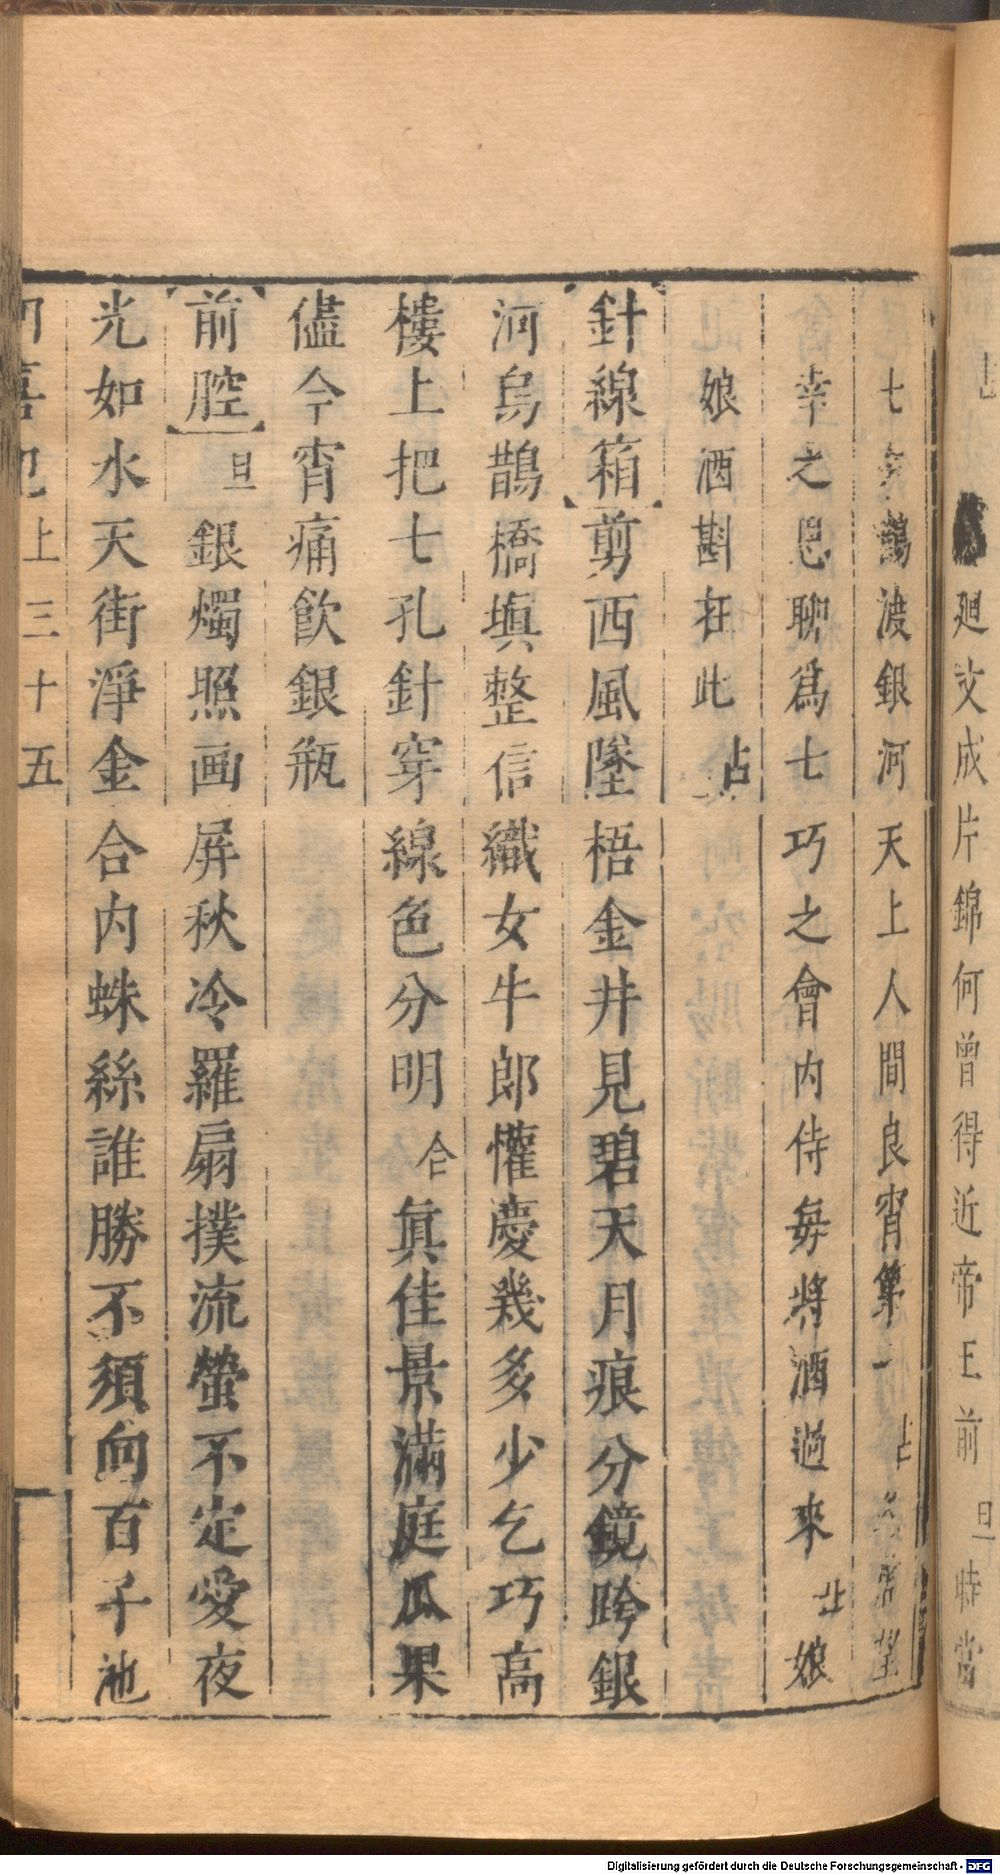 廻文成片錦何曾得近帝王前旦時當
七夕鵲渡銀河天上人間良宵第一占
幸之恩聊爲七巧之會内侍每將酒過來北娘
娘酒斟在此占
針線箱剪西風墜梧金井見碧天月痕分鏡跨銀
河烏鵲橋塡整信織女牛郎懽慶幾多少乞巧高
樓上把七孔針穿線色分明合眞佳景滿庭瓜果
儘今宵痛飲銀瓶
前腔旦銀燭照画屏秋冷羅扇撲流螢不定愛夜
光如水天街淨金合内蛛絲誰勝不須向百子池
上三十五
Digitalisierung gefördert durch die Deutsche Forschungsgemeinschaft - DFG